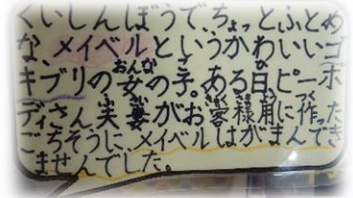 くいしんぼうで、ちょっとふとめ
な、メイベルというかわいいゴ
キブリの女の子。ある日、ピーボ
ディさん夫妻がお客様用に作った
ごちそうに、メイベルはがまんでき
ませんでした。